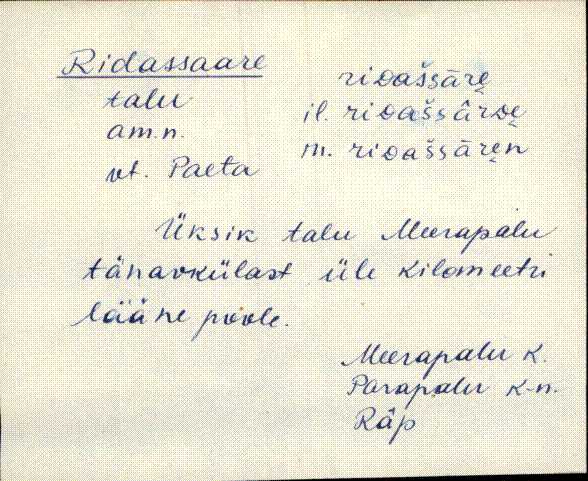 Ridassaare
talu
am.n.
vt. Paeta
riᴅašsārę
il. riᴅašsârᴅę
m. riᴅašsāręn
Üksik talu Meerapalu
tänavkülast üle kilomeetri
lääne poole.
Meerapalu k.
Parapalu k-n.
Räp